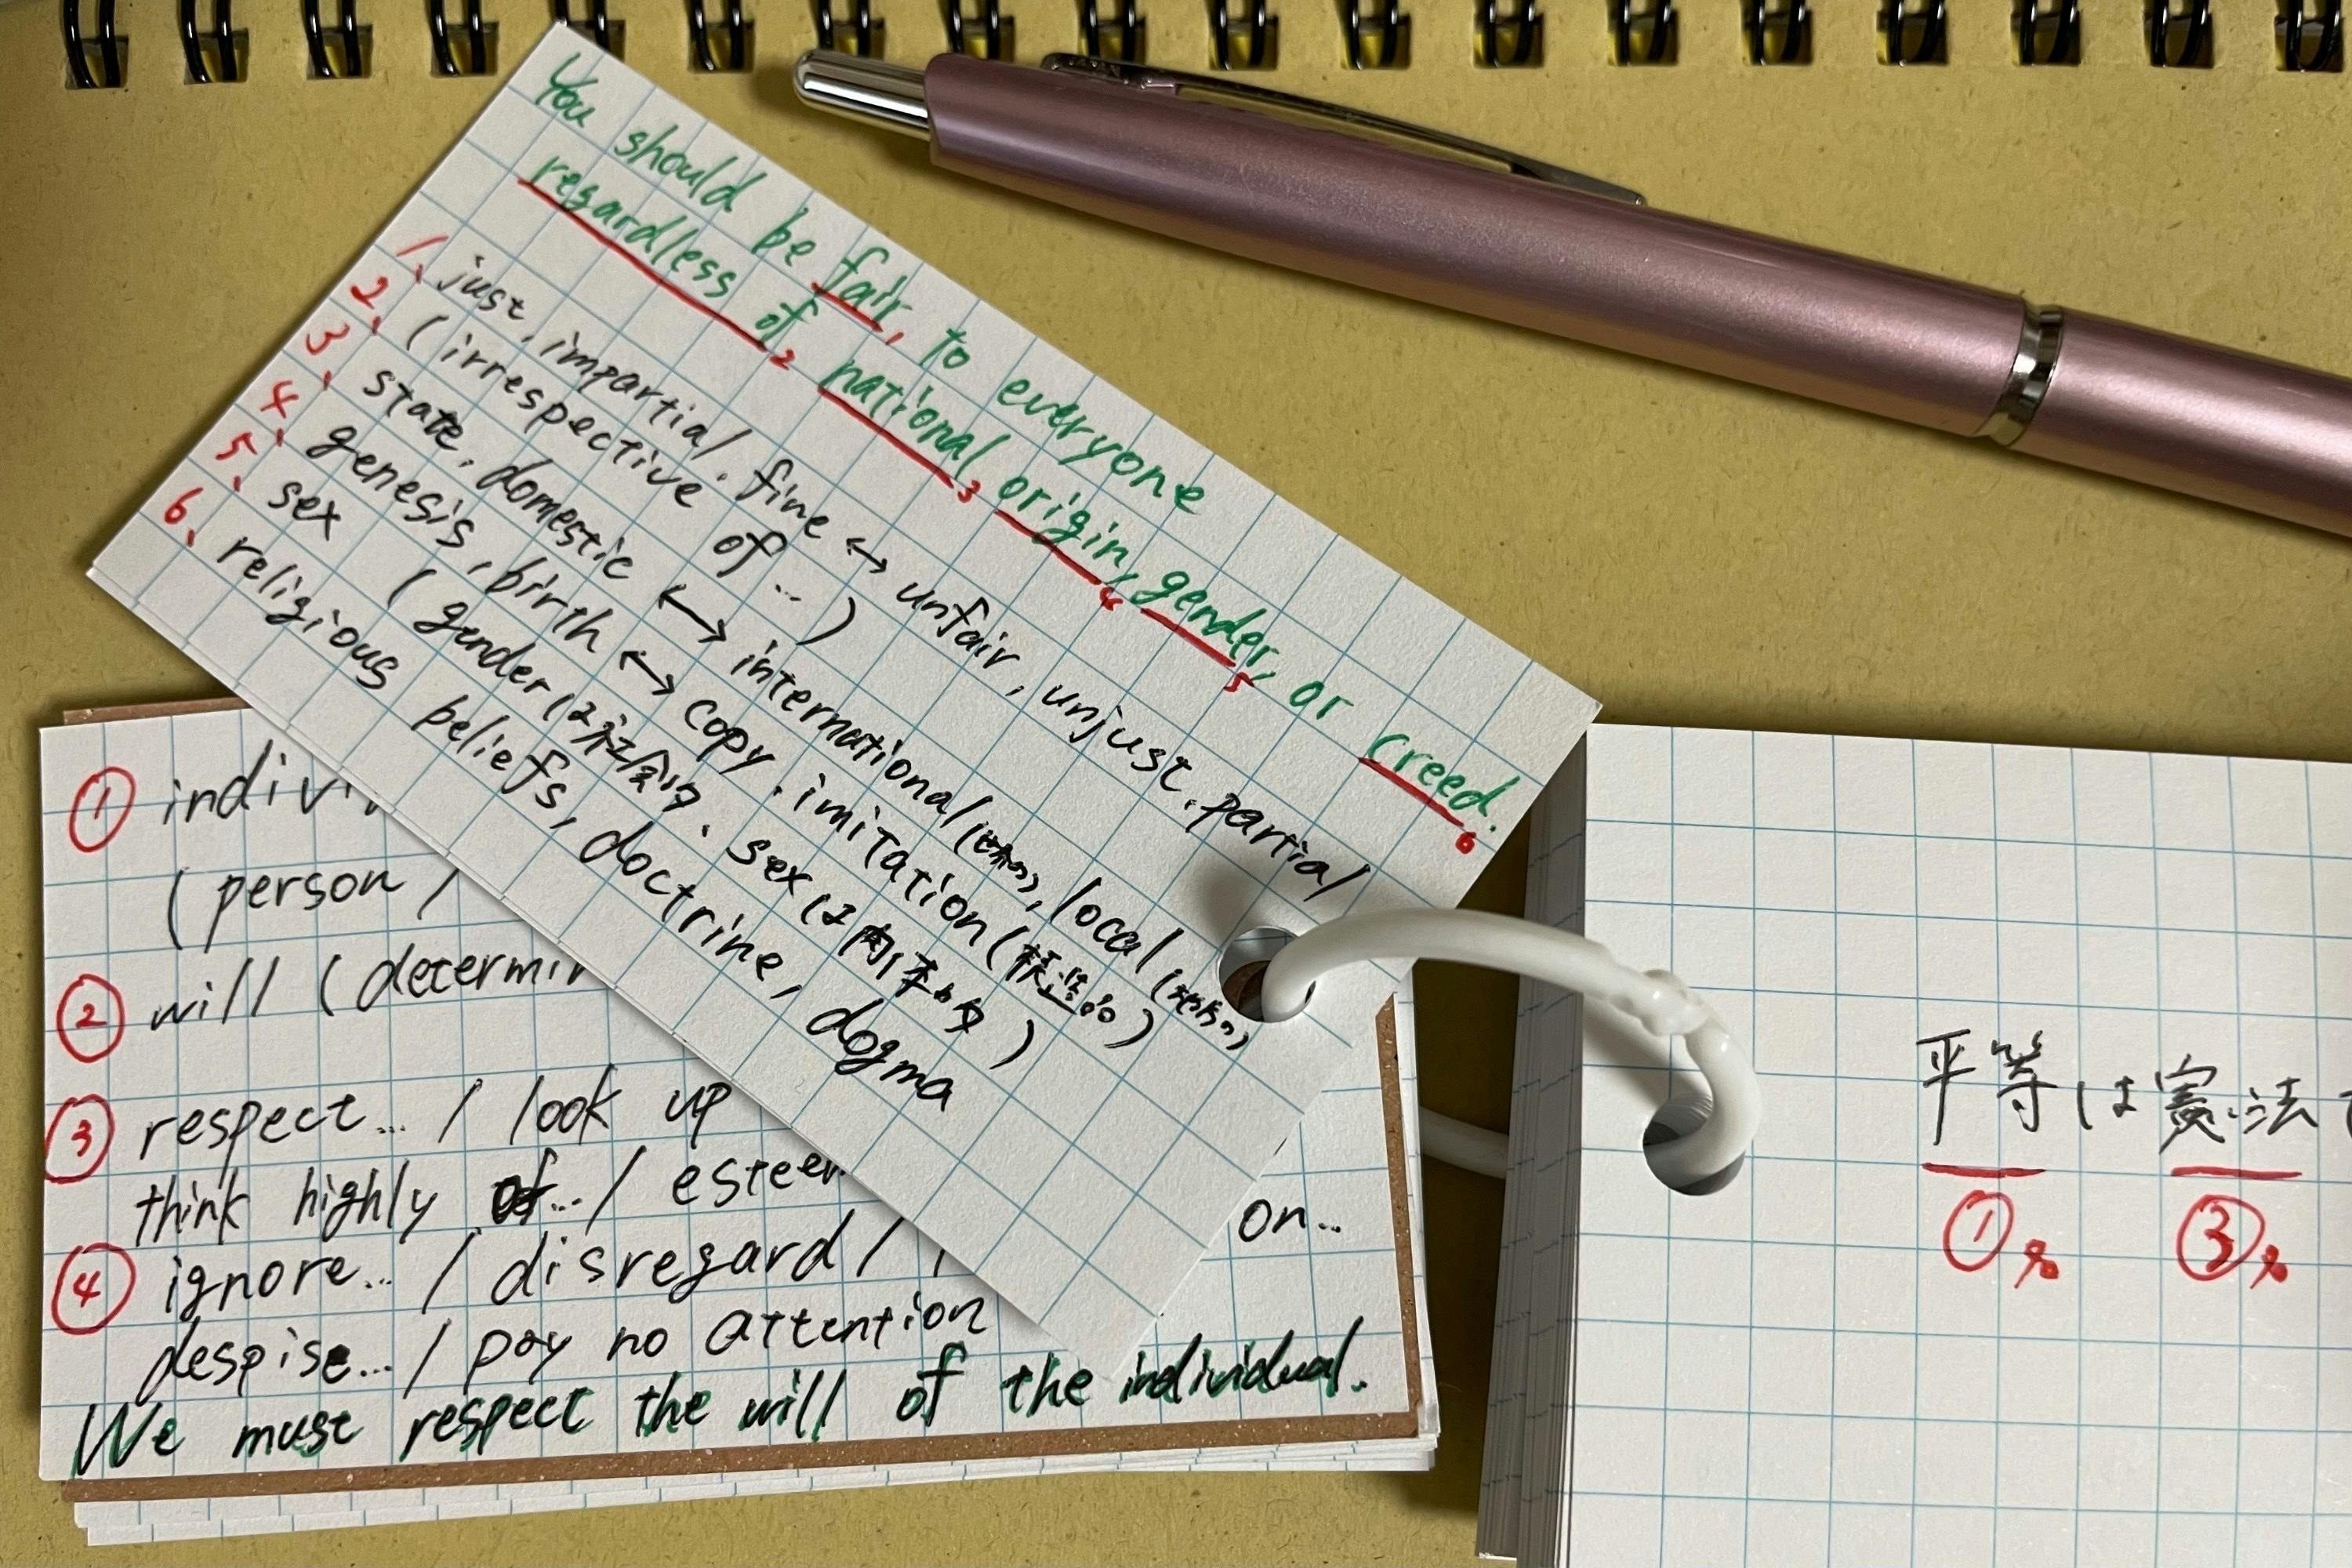 You should be fair1 to everyone
regardless of2 national3 origin4, gender5, or creed.6
1. just, impartial. fine ↔ unfair, unjust. partial
2. (irrespective of...)
3. state. domestic ↔ international local
4. genesis, birth ↔ copy. imitation
5. sex (gender は社会的、sexは肉体的)
6. religious beliefs, doctrine, dogma
①
(person /
② will
③ respect... / look up
think highly of... /
④ ignore... / disregard / on...
despise... / pay no attention
We must respect the will of the individual.
平等は憲法
① ③